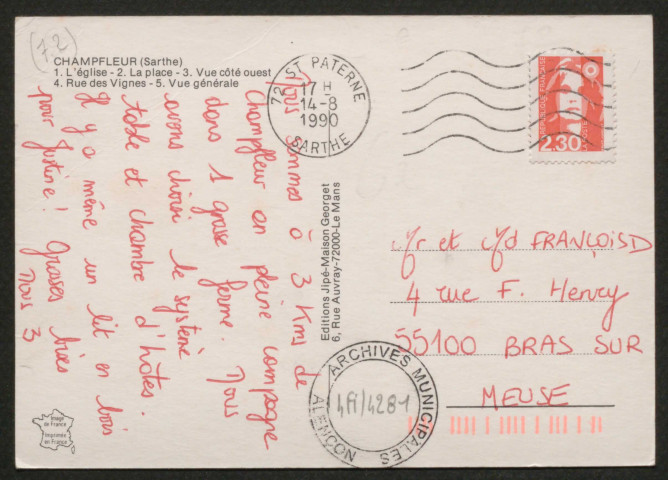 (72)
CHAMPFLEUR (Sarthe)
1. L'église - 2. La place - 3. Vue côté ouest
4. Rue des Vignes - 5. Vue générale
72 ST PATERNE
17 H
14-8
1990
SARTHE
REPUBLIQUE FRANÇAISE
2,30
Nous sommes à 3 Km de
Champfleur en pleine campagne
dans 1 grosse ferme. Nous
avons choisi le système
table et chambre d'hôtes.
Il y a même un lit en bois
pour Justine! Grosses bises
Nous 3
Editions Jipé-Maison Georget
6, Rue Auvray-72000-Le Mans
et FRANÇOIS D
4 rue F. Henry
55100 BRAS SUR
MEUSE
ARCHIVES MUNICIPALES
4Fi/4281
ALENÇON
Image
de France
Imprimée
en France